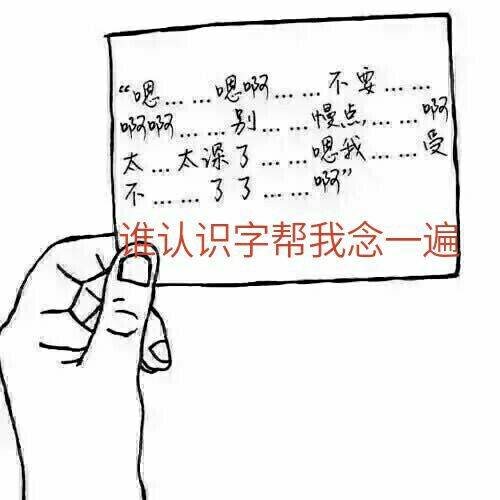 “嗯……嗯啊……不要……
啊啊……别……慢点,……啊
太…太深了……嗯我……受
不……了了……啊”
谁认识字帮我念一遍